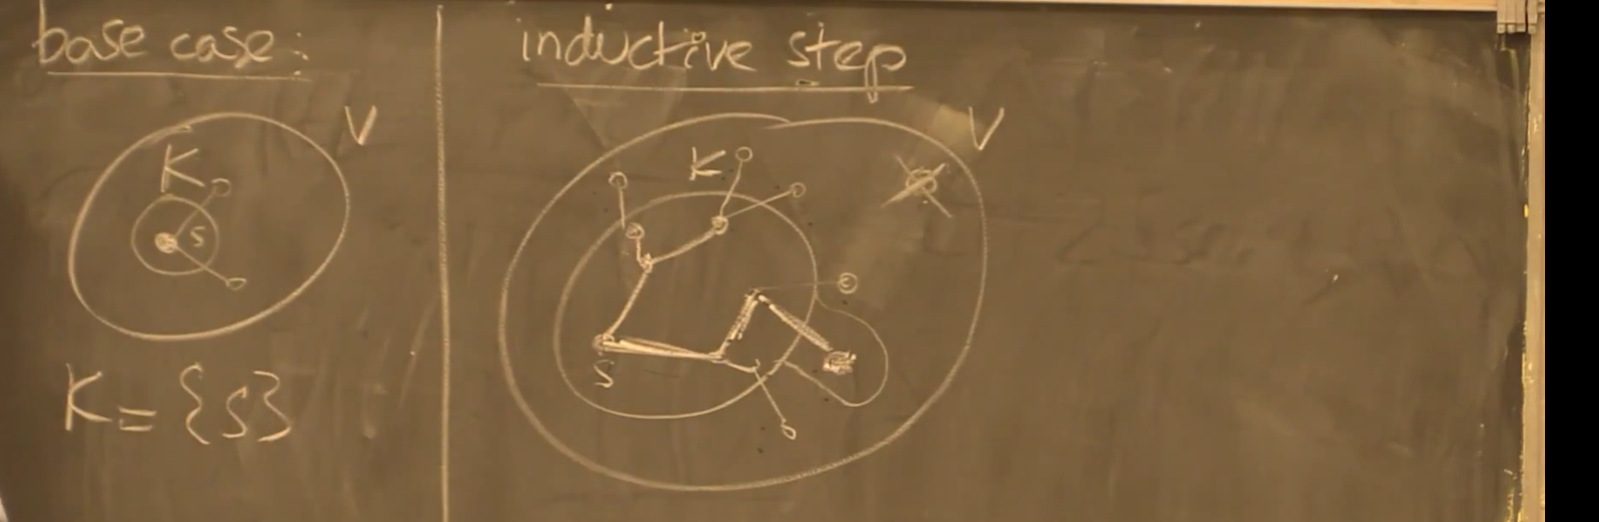 base case:
V
K
S
K = {S}
inductive step
V
K
S